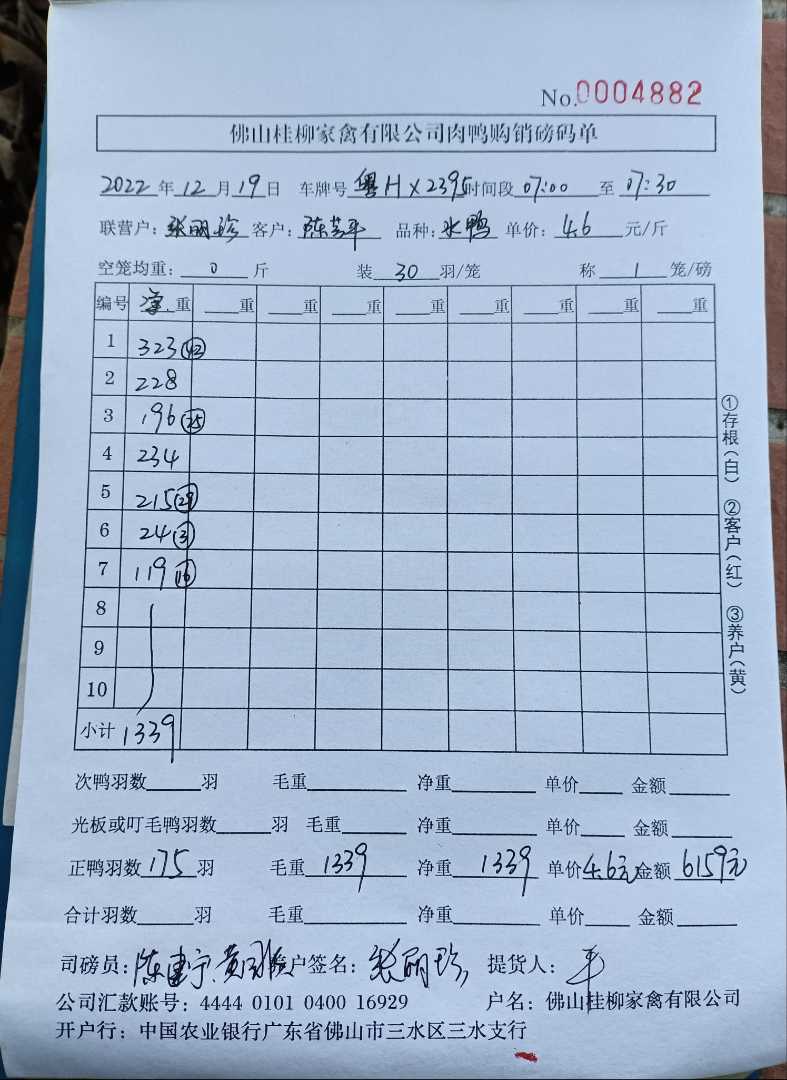 No.0004882
佛山桂柳家禽有限公司肉鸭购销磅码单
2022年12月19日 车牌号 粤HX2395 时间段 07:00 至 07:30
联营户: 张丽珍 客户: 陈 平 品种: 水鸭 单价: 4.6 元/斤
空笼均重: 0 斤 装 30 羽/笼 称 1 笼/磅
编号 重 重 重 重 重 重 重 重 重
1 323 (42)
2 228
3 196 (25)
4 234
5 215 (29)
6 24 (3)
7 119 (16)
8
9
10
小计 1339
次鸭羽数 羽 毛重 净重 单价 金额
光板或叮毛鸭羽数 羽 毛重 净重 单价 金额
正鸭羽数 175 羽 毛重 1339 净重 1339 单价 4.6元 金额 6159元
合计羽数 羽 毛重 净重 单价 金额
司磅员: 陈建宁 黄 户签名: 张丽珍 提货人: 平
公司汇款账号: 4444 0101 0400 16929 户名: 佛山桂柳家禽有限公司
开户行: 中国农业银行广东省佛山市三水区三水支行
①存根(白) ②客户(红) ③养户(黄)